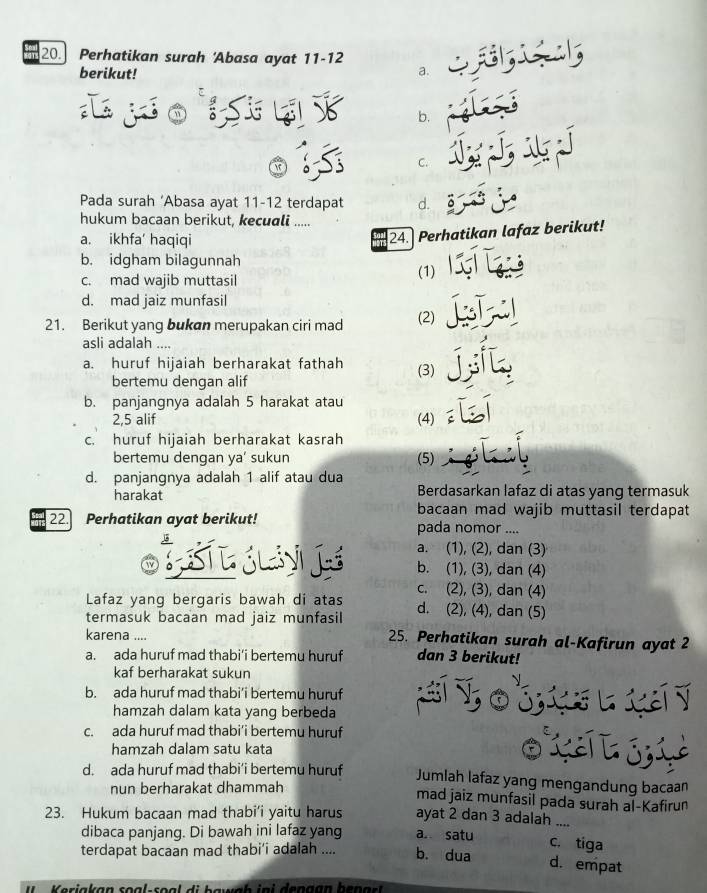 Soal HOTS 20. Perhatikan surah ‘Abasa ayat 11-12
berikut!
كَلَّا إِنَّهَا تَذْكِرَةٌ ۚ ١١ فَمَنْ شَاءَ
ذَكَرَهُ ١٢
Pada surah ‘Abasa ayat 11-12 terdapat
hukum bacaan berikut, kecuali .....
a. ikhfa’ haqiqi
b. idgham bilagunnah
c. mad wajib muttasil
d. mad jaiz munfasil
21. Berikut yang bukan merupakan ciri mad
asli adalah ....
a. huruf hijaiah berharakat fathah
bertemu dengan alif
b. panjangnya adalah 5 harakat atau
2,5 alif
c. huruf hijaiah berharakat kasrah
bertemu dengan ya’ sukun
d. panjangnya adalah 1 alif atau dua
harakat
Soal HOTS 22. Perhatikan ayat berikut!
قُتِلَ الْإِنْسَانُ مَا أَكْفَرَهُ ١٧
Lafaz yang bergaris bawah di atas
termasuk bacaan mad jaiz munfasil
karena ....
a. ada huruf mad thabi’i bertemu huruf
kaf berharakat sukun
b. ada huruf mad thabi’i bertemu huruf
hamzah dalam kata yang berbeda
c. ada huruf mad thabi’i bertemu huruf
hamzah dalam satu kata
d. ada huruf mad thabi’i bertemu huruf
nun berharakat dhammah
23. Hukum bacaan mad thabi’i yaitu harus
dibaca panjang. Di bawah ini lafaz yang
terdapat bacaan mad thabi’i adalah ....
a. وَاسْجُدْ وَاقْتَرِبْ
b. فَجَعَلَهُمْ
c. لَمْ يَلِدْ وَلَمْ يُولَدْ
d. مِنْ ثَمَرَةٍ
Soal HOTS 24. Perhatikan lafaz berikut!
(1)
(2)
(3) بِمَا أُنْزِلَ
(4) أَضَاءَ
(5)
Berdasarkan lafaz di atas yang termasuk
bacaan mad wajib muttasil terdapat
pada nomor ....
a. (1), (2), dan (3)
b. (1), (3), dan (4)
c. (2), (3), dan (4)
d. (2), (4), dan (5)
25. Perhatikan surah al-Kafirun ayat 2
dan 3 berikut!
لَا أَعْبُدُ مَا تَعْبُدُونَ ۙ ٢ وَلَا أَنْتُمْ
عَابِدُونَ مَا أَعْبُدُ ۚ ٣
Jumlah lafaz yang mengandung bacaan
mad jaiz munfasil pada surah al-Kafirun
ayat 2 dan 3 adalah ....
a. satu c. tiga
b. dua d. empat
II. Kerjakan soal-soal di bawah ini dengan benar!